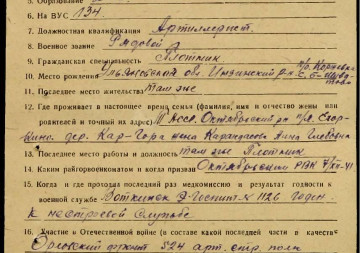 5. Образование
6. На ВУС 134.
7. Должностная квалификация Артиллерист.
8. Военное звание Рядовой
9. Гражданская специальность Плотник
10. Место рождения Ульяновской обл. Инзенский р-н с.
11. Последнее место жительства там же
12. Где проживает в настоящее время семья (фамилия, имя и отчество жены или
родителей и точный их адрес) Октябрьский
гор. Кар-Гора жена Карандаева Анна Глебовна
13. Последнее место работы и должность там же Плотник
14. Каким райгорвоенкоматом и когда призван Октябрьским РВК
15. Когда и где проходил последний раз медкомиссию и результат годности к
военной службе Воткинск Э-Госпиталь 1126 Годен
к нестроевой службе
16. Участие в Отечественной войне (в составе какой последней части в качестве
Орловский фронт 524 арт. стр. полк